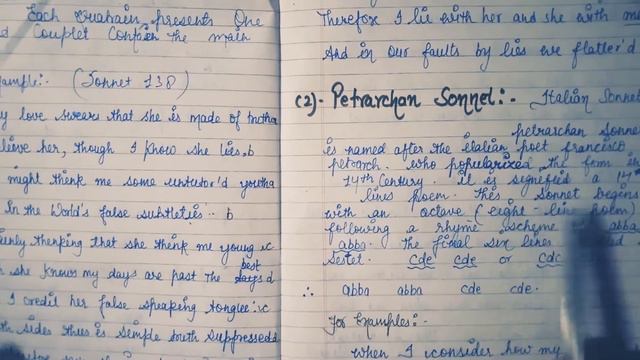 Each Quatrain presents One
Couplet Confirm the main
(Sonnet 138)
love swears that she is made of trutha
her, though I know she lies, b
might think me some untutor'd youtha
In the World's false subtleties.. b
thinking that she think me young :c
she knows my days are past the best days d
I credit her false speaking tongue :c
sides thus is semple truth suppressed
Therefore I lie with her and she with
And in our faults by lies we flatter'd
(2)- Petrarchan Sonnel:- Italian Sonnet
petrarchan Sonne
is named after the italian poet francisco
petrarch. who popularized the form in
14th Century. it is signified a 14
lines poem. This Sonnet begins
with an octave (eight-line poem)
following a rhyme scheme abba
abba. The final six lines
Sestet. cde cde or cdc
∴ abba abba cde cde.
For Examples:-
When I consider how my